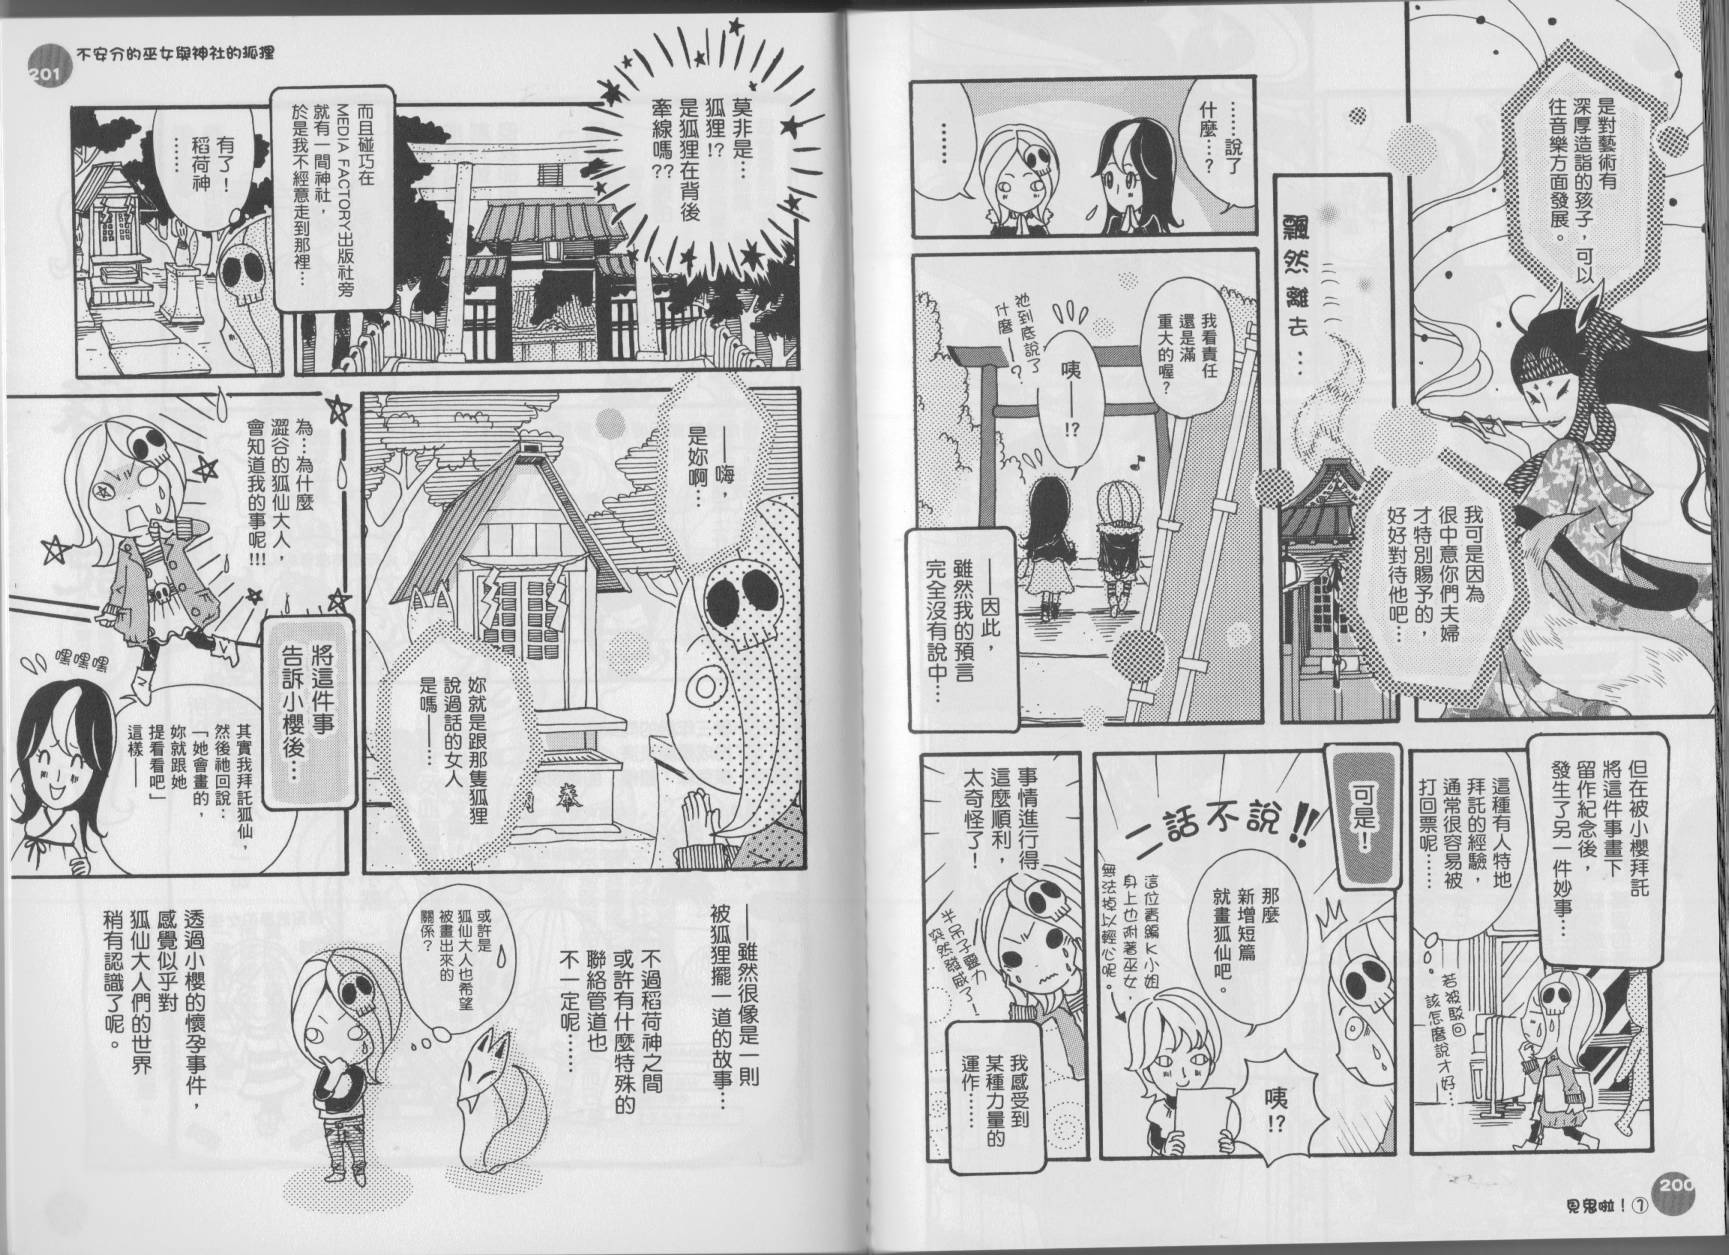 是對藝術有
深厚造詣的孩子，可以
往音樂方面發展。
我可是因為
很中意你們夫婦
才特別賜予的，
好好對待他吧…
飄然離去…
……說了
什麼…?
……
我看責任
還是滿
重大的喔?
咦——!?
祂到底說了
什麼——?
——因此，
雖然我的預言
完全沒有說中…
但在被小櫻拜託
將這件事畫下
留作紀念後，
發生了另一件妙事…
這種有人特地
拜託的經驗，
通常很容易被
打回票呢……
若被駁回
該怎麼說才好…
可是!
二話不說!!
那麼
新增短篇
就畫狐仙吧。
咦!?
這位責編K小姐
身上也附著巫女，
無法掉以輕心呢。
事情進行得
這麼順利，
太奇怪了!
半吊子靈力
突然發威了!
我感受到
某種力量的
運作……
見鬼啦!①
200
201
不安分的巫女與神社的狐狸
莫非是…
狐狸!?
是狐狸在背後
牽線嗎??
而且碰巧在
MEDIA FACTORY出版社旁
就有一間神社，
於是我不經意走到那裡…
有了!
稻荷神
……
——嗨，
是妳啊…
妳就是跟那隻狐狸
說過話的女人
是嗎——…
奉
為…為什麼
澀谷的狐仙大人，
會知道我的事呢!!!
將這件事
告訴小櫻後…
嘿嘿嘿
其實我拜託狐仙，
然後祂回說：
「她會畫的，
妳就跟她
提看看吧」
這樣——
——雖然很像是一則
被狐狸擺一道的故事…
不過稻荷神之間
或許有什麼特殊的
聯絡管道也
不一定呢……
或許是
狐仙大人也希望
被畫出來的
關係?
透過小櫻的懷孕事件，
感覺似乎對
狐仙大人們的世界
稍有認識了呢。